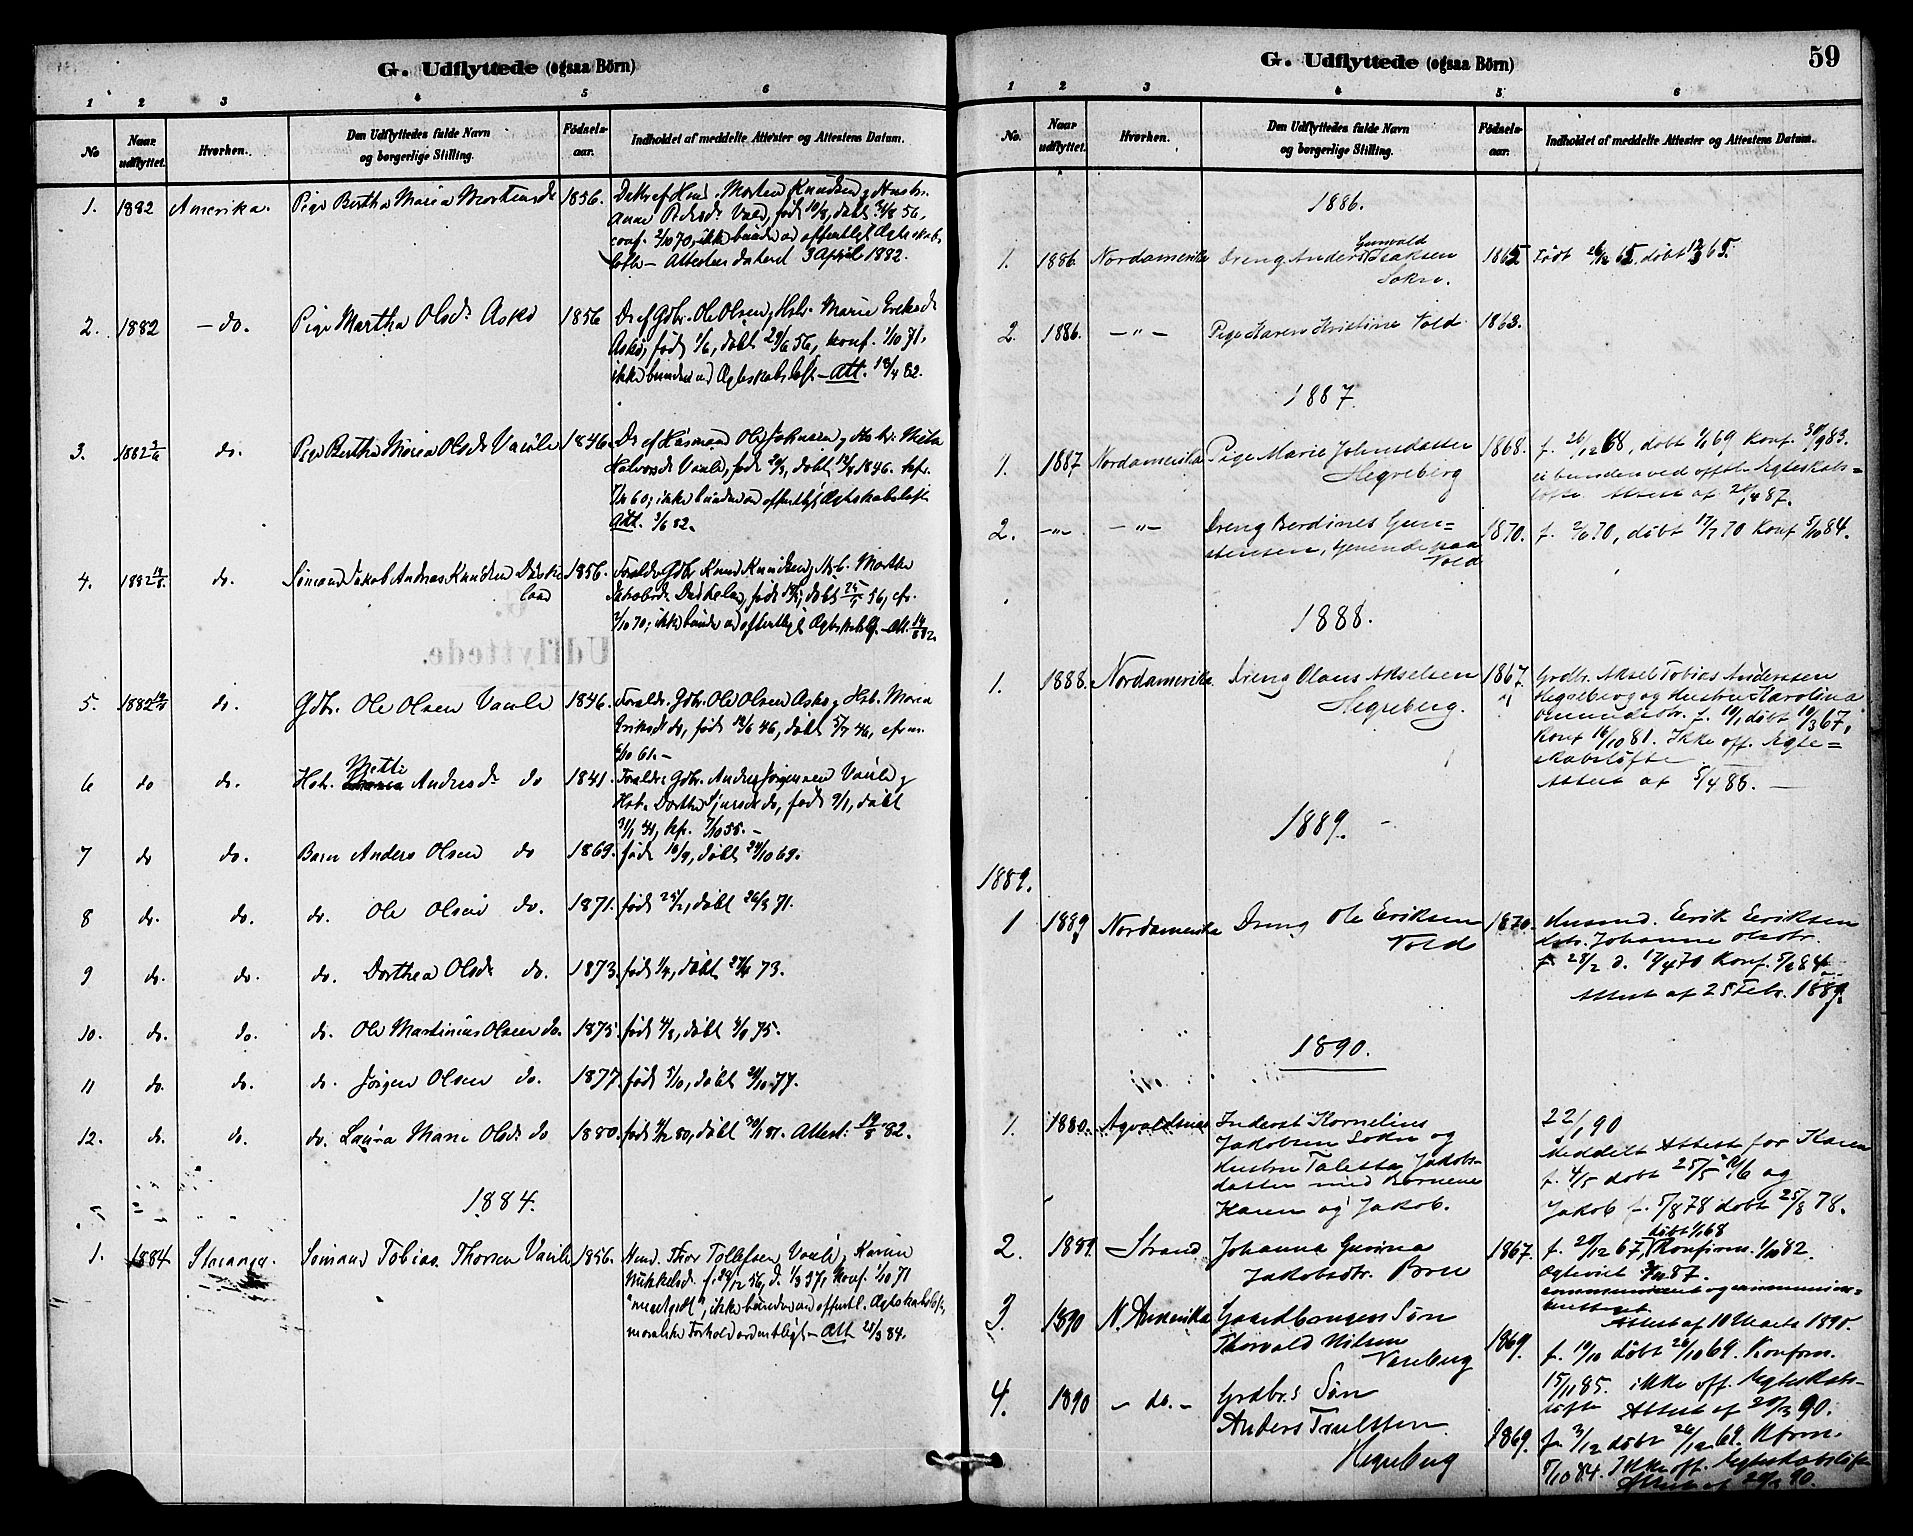 G. Udflyttede (ogsaa Börn)
1 2 3 4 5 6
No
Naar udflyttet.
Hvorhen.
Den Udflyttedes fulde Navn
og borgerlige Stilling.
Födsels-
aar.
Indholdet af meddelte Attester og Attestens Datum.
1. 1882 Amerika. Pige Bertha Maria Mortensd 1856. Datter af Husm. Morten Knudsen og Hustr.
Anne Pedersd Vold, født 10/8, døbt 31/8 56,
conf. 2/10 70, ikke bunden ved offentligt Ægteskabs
løfte – Attesten dateret 3 April 1882.
2. 1882 – do. Pige Martha Olsdr Askø 1856 Dr. af Gdbr. Ole Olsen og Hstr. Marie Eriksdr
Askø, født 1/6, døbt 29/6 56, konf. 1/10 71.
ikke bunden ved Ægteskabsløft – Att. 18/4 82.
3. 1882 2/6 do. Pige Bertha Maria Olsdr Vaule 1846. Dr. af Husmand Ole Johnsen og Hstr. Mette
Halvorsdr Vaule, født 20/3, døbt 1846.
60, ikke bunden ved offentligt Ægteskabsløfte
Att. 3/6 82.
4. 1882 14/8 do. Sømand Jakob Andreas Knudsen Daske 1856. Foraldr. Gdbr. Knud Knudsen og Hstr. Martha
land
Jakobsdr Daskeland, født døbt 25/ 56,
2/10 70, ikke bunden ved offentligt Ægteskabsl. – Att. 14/8 82.
Udflyttede.
5. 1882 19/8 do. Gdbr. Ole Olsen Vaule 1846. Foraldr. Gdbr. Ole Olsen Askø og Hst. Maria
Eriksdr do, født 14/6 46, døbt 5/7 46,
6/10 61. –
Mette
6 do do. Hstr. Andersdr do 1841. Foraldr. Gdbr. Anders Jørgensen Vaule og
Hstr. Dorthea Sjursdr do, født 9/1, døbt
31/1 41, kf. 7/10 55. –
7 do do. Barn Anders Olsen do 1869. født 10/9, døbt 24/10 69.
8 do. do. do. Ole Olsen do. 1871. født 25/2, døbt 26/3 71.
9 do. do. do. Dorthea Olsdr do. 1873. født 1/4, døbt 27/4 73.
10. do. do. do. Ole Martinius Olsen do. 1875. født 4/3, døbt 75.
11 do. do. do. Jørgen Olsen do. 1877. født 5/10, døbt 28/10 77.
12. do. do. do. Laura Marie Olsdr do 1880. født 4/12 80, døbt 30/1 81. Attest: 19/8 82.
1884.
1. 1884 Stavanger. Sømand Tobias Thorsen Vaule 1856. Husm. Thor Tollefsen Vaule og Karine
Mikkelsdr. f. 29/12 56, d. 1/3 57, Konf. 1/10 71
"meget godt", ikke bunden ved offentl. Ægteskabsløfte,
moralske Forhold ordentligt – Att 25/3 84.
G. Udflyttede (ogsaa Börn)
59
1 2 3 4 5 6
No.
Naar
udflyttet.
Hvorhen.
Den Udflyttedes fulde Navn
og borgerlige Stilling.
Födsels-
aar.
Indholdet af meddelte Attester og Attestens Datum.
1886.
Gunvald
1. 1886 Nordamerika Dreng Anders Isaksen 1865 Født 26/12 65, døbt 65.
Sokn.
2. 1886. – " – Pige Karen Kristine Vold. 1863.
1887.
1. 1887 Nordamerika Pige Marie Johnsdatter 1868. f. 26/12 68, døbt 69 Konf. 30/9 83.
Hegreberg
ei bunden ved offtl. Ægteskabs=
løfte. Attest af 20/4 87.
2. –"– – "– Dreng Berdines Gun= 1870. f. 70, døbt 17/7 70 Konf 5/10 84.
stensen, tjenende paa
Vold
1888.
1. 1888. Nordamerika. Dreng Olaus Akselsen 1867. Grdbr. Aksel Tobias Anderssen
Hegreberg.
Hegreberg og Hustru Karolina
Omundsdtr. f. 10/1, døbt 10/3 67,
Konf 16/10 81. Ikke off. Ægte=
skabsløfte
Attest af 5/4 88. –
1889.
1889.
1 1889 Nordamerika Dreng Ole Eriksen 1870. Husmd. Eerik Eeriksen
Vold
Hstr. Johanne Olsdtr.
f. 25/2 d. 17/4 70 Konf. 5/ 84.
Attest af 25 Febr. 1889.
1890.
1. 1880. Agvaldsnes Inderst Kornelius 22/1 90
Jakobsen Sokn og
Hustru Taletta Jakobs-
datter med Børnene
Karen og Jakob.
Meddelt Attest for Karen
f. 4/5 døbt og
Jakob f. 5/8 78 døbt 25/8 78.
døbt 1/1 68
2. 1889. Strand Johanna Gurina 1867. f. 20/12 67, Konfirm. 1/10 82.
Jakobsdtr. Bru
87.
Attest af 10 Marts 1890.
3. 1890 N. Amerika Gaardbrugers Søn
Thorvald Nilsen 1869. f. 19/10 døbt 26/10 69. Konfirm.
Vareberg
15/11 85. ikke off. Ægteskabs-
løfte Attest af 20/3 90.
4. 1890 – do. – Grdbr.s Søn
Anders Truelssen
Hegreberg 1869. f. 3/12 døbt 26/12 69. Kfirm.
5/10 84. Ikke off. Ægteskabsløfte
Attest af 20/3 90.